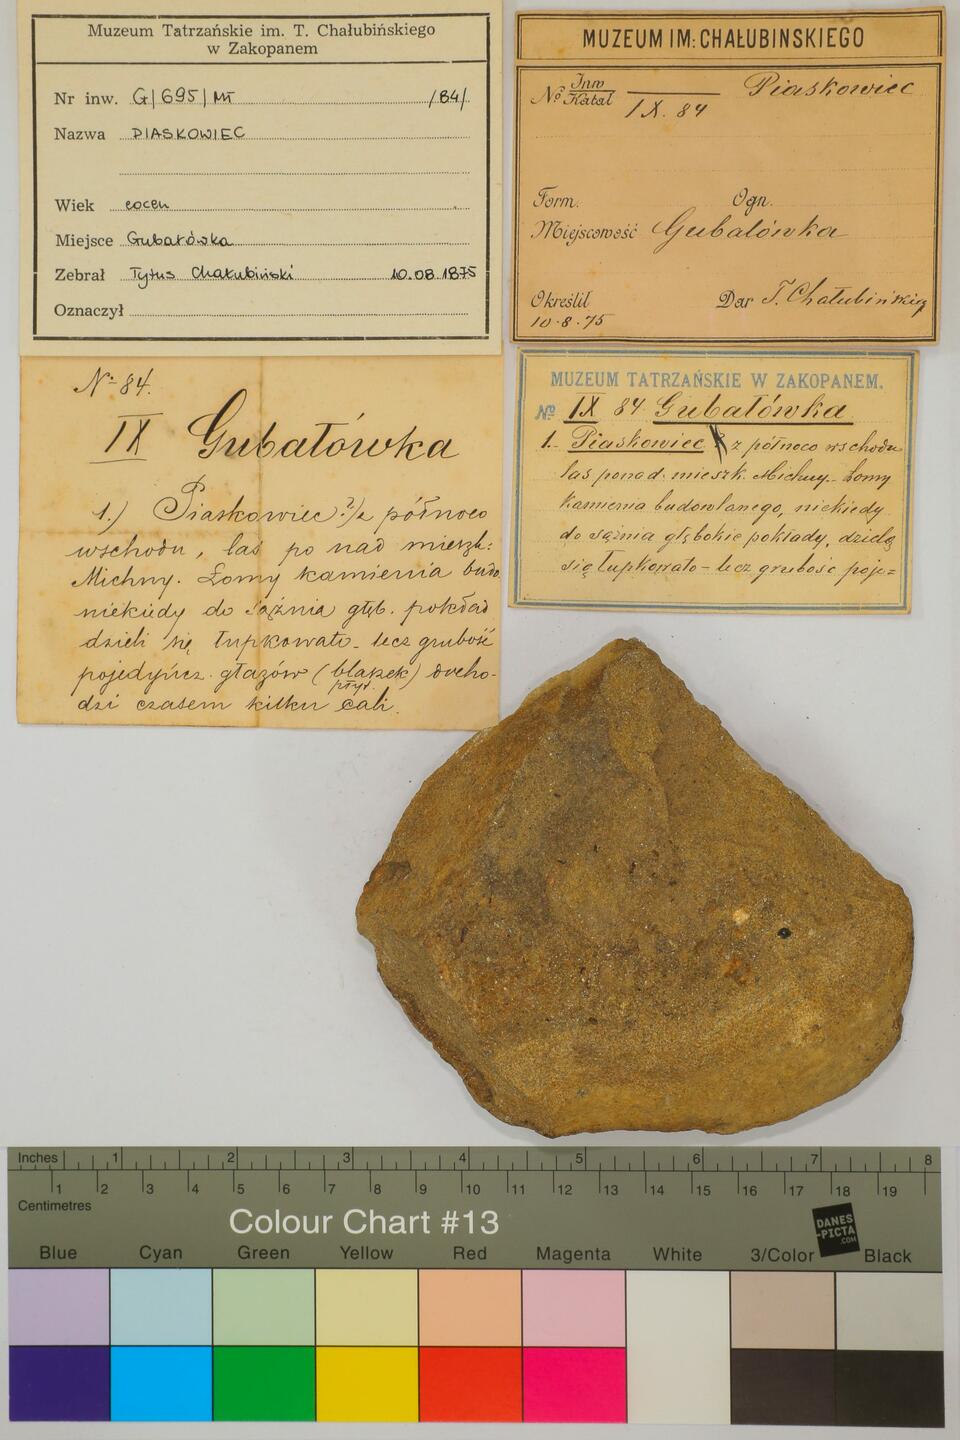 Muzeum Tatrzańskie im. T. Chałubińskiego
w Zakopanem
Nr inw. G/695/MT /84/
Nazwa PIASKOWIEC
Wiek eocen
Miejsce Gubałówka
Zebrał Tytus Chałubiński 10.08.1875
Oznaczył
MUZEUM IM: CHAŁUBINSKIEGO
No Inw
Katal
IX. 84
Piaskowiec
Form. Ogn.
Miejscowość Gubałówka
Określił Dar T. Chałubińskieg
10.8.75
No 84.
IX Gubałówka
1.) Piaskowiec ?) z północo
wschodu, las po nad mieszk:
Michny. Łomy kamienia budo.
niekiedy do sążnia głęb. pokład
dzieli się łupkowato - lecz grubość
pojedyńcz. głazów (blaszek) docho-
płyt.
dzi czasem kilku cali.
MUZEUM TATRZAŃSKIE W ZAKOPANEM.
No IX 84. Gubałówka
1. Piaskowiec z północo wschodu
las ponad. mieszk. Michny. Łomy
kamienia budowlanego, niekiedy
do sążnia głębokie pokłady, dzielą
się łupkowato - lecz grubość poje=
Inches 1 2 3 4 5 6 7 8
1 2 3 4 5 6 7 8 9 10 11 12 13 14 15 16 17 18 19
Centimetres
Colour Chart #13
DANES
-PICTA
.COM
Blue Cyan Green Yellow Red Magenta White 3/Color Black